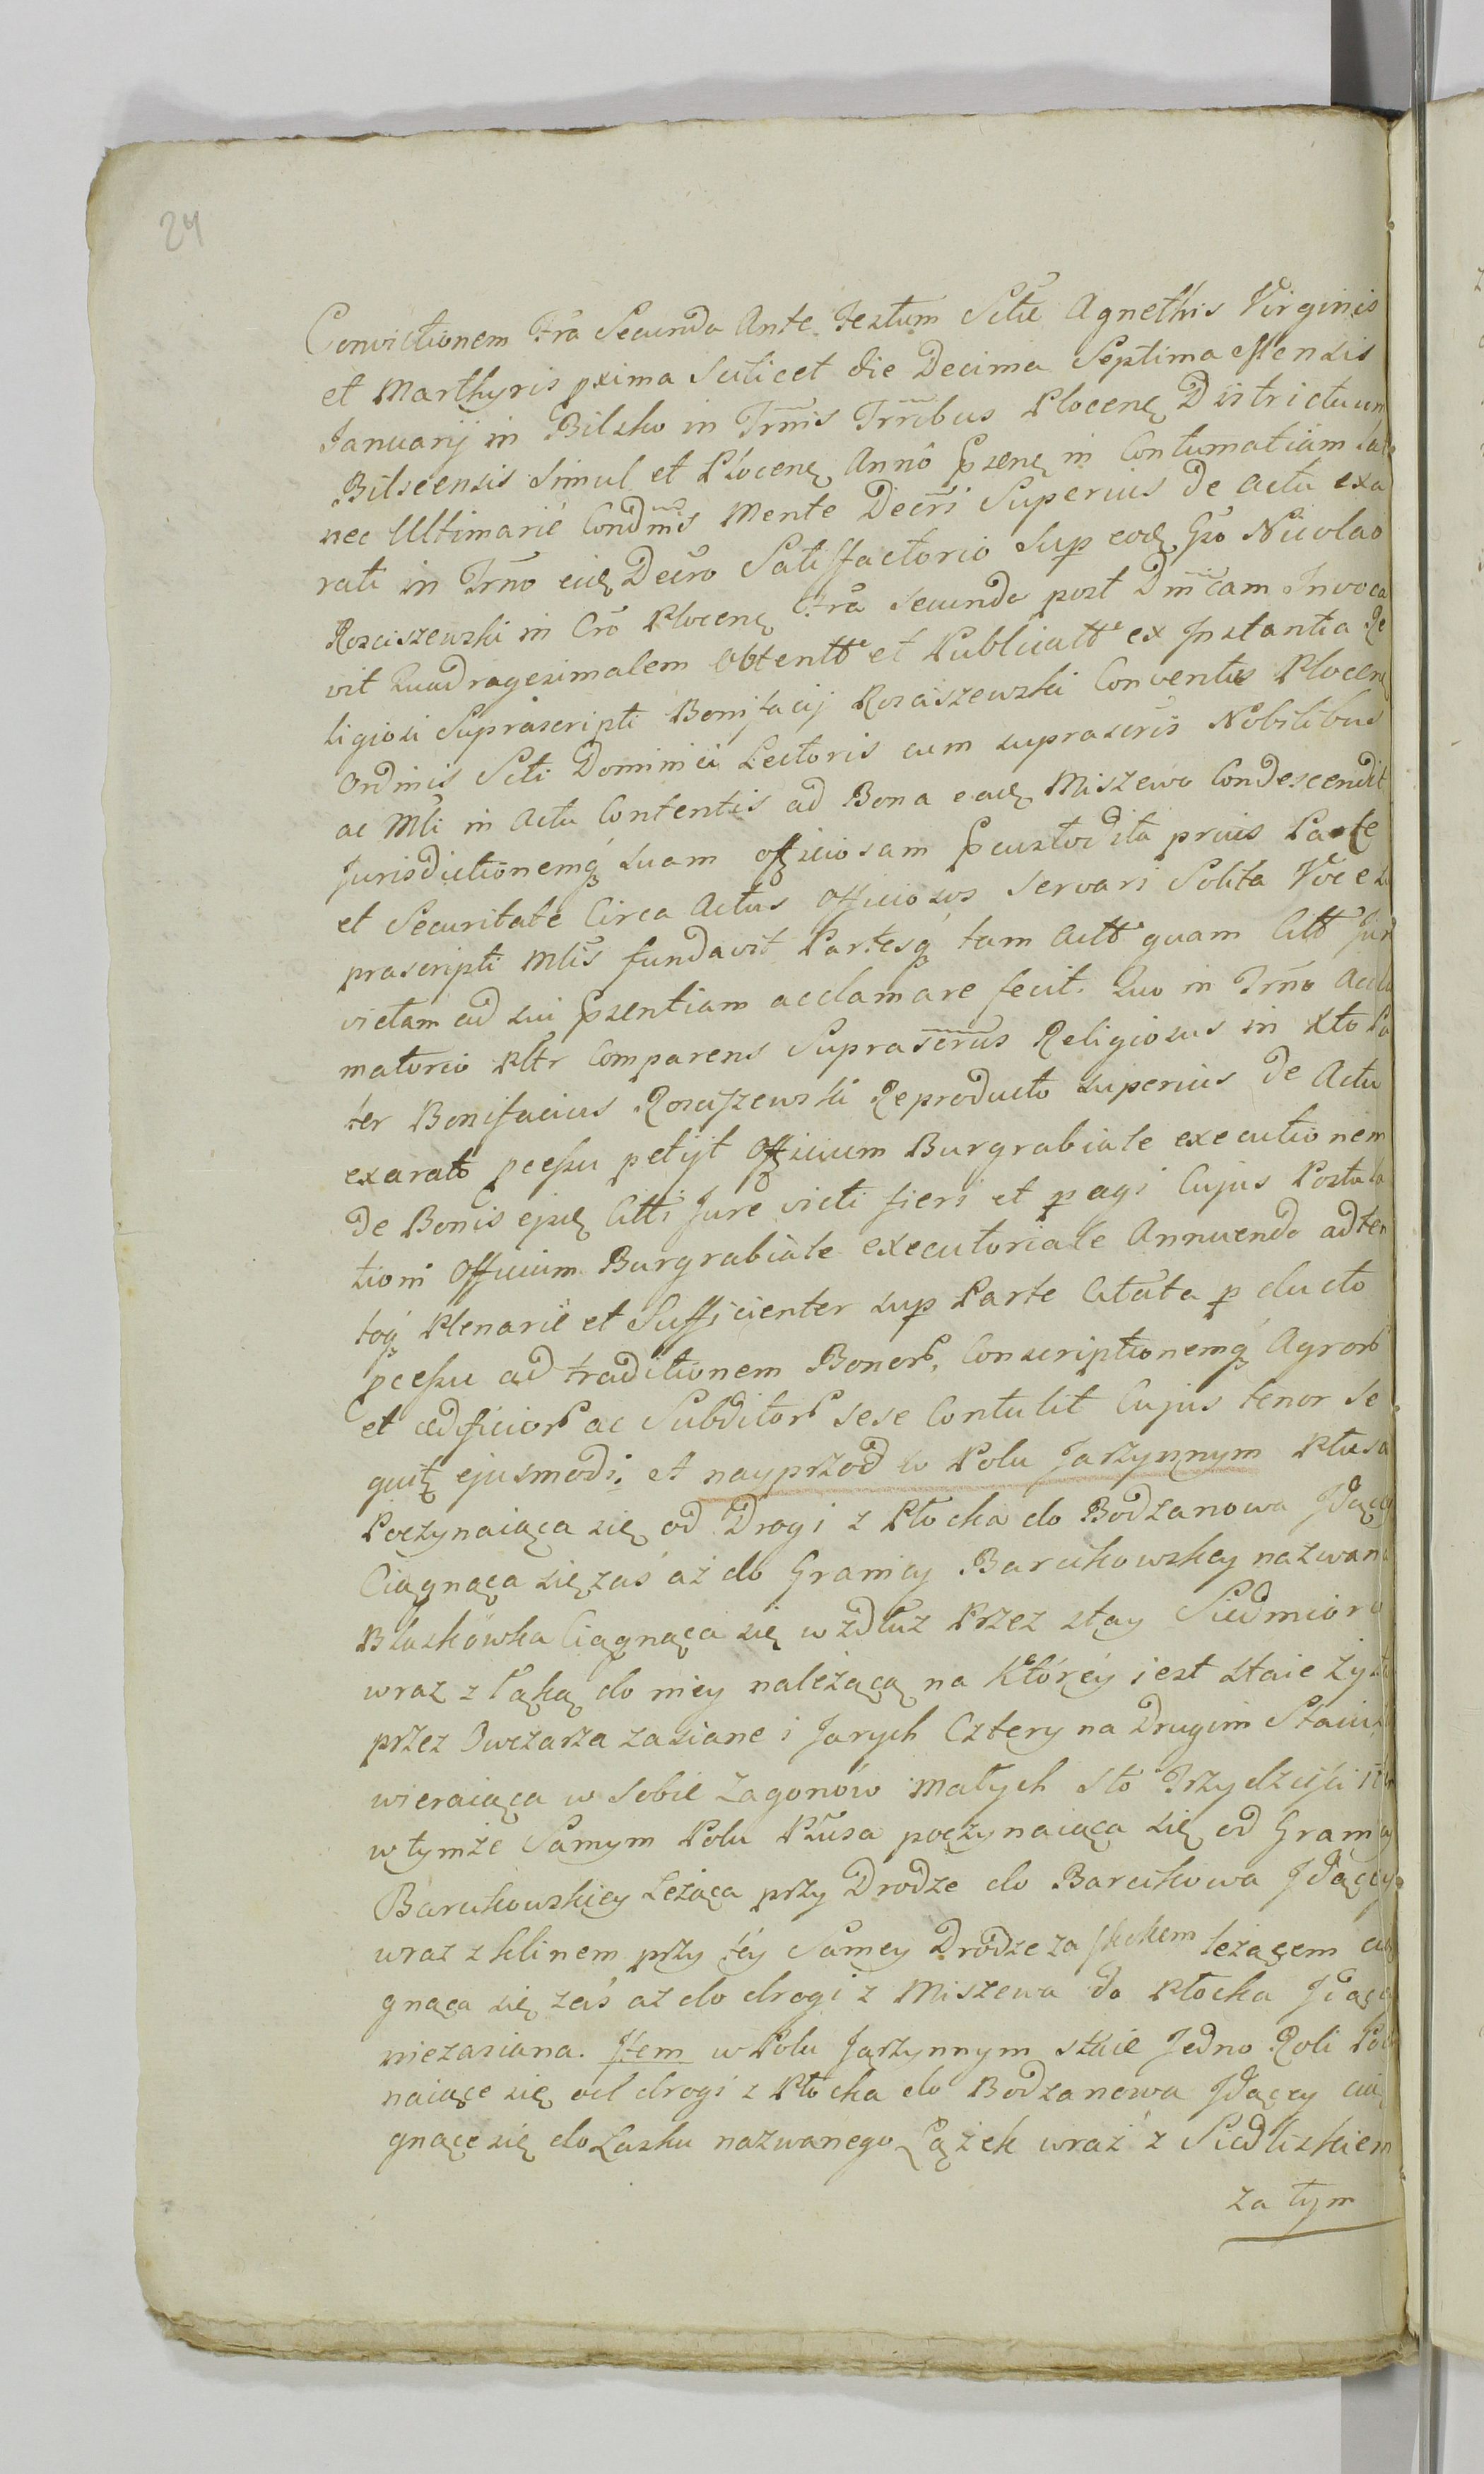 24
Convictionem Fra Secunda Ante Festum Sctæ Agnethis Virginis
et Marthyris pxima Scilicet die Decima Septima Mensis
Januarij in Bilsko in Trmis Trribus Plocenę Districtuum
Bilscensis Simul et Plocenę Anno Pszenę in Contumatiam
nec Ultimarie Condmis Mente Decri Superius de actu exa
rati in Trno eiuę Decro Satisfactorio Sup eodę Gso Nicolao
Rosciszewski in Cro Plocenę fra Secunda post Dmcam Invoca
vit Quadragesimalem Obtentte et Publicatte ex Instantia Re
ligiosi Suprascripti Bonifacij Rosciszewski Conventus Plocenę
Ordinis Scti Dominici Lectoris cum suprascris Nobilibus
ac Mli in Actu Contentis ad Bona eadę Miszewo Condescendit
Jurisdictionemq suam officiosam Pcustodita prius Parte
et Securitate Circa Actus Officiosos Servari Solita Voce su
prascripti Mlis fundavit Partesq tam Actt quam Citt Jure
victam ad sui Pszentiam acclamare fecit. Quo in Trno Accla
matorio Pltr Comparens Suprascrus Religiosus in Xto Pa
ter Bonifacius Rosciszewski Reproducto superius de Actu
exarato pcessu petijt Officium Burgrabiale executionem
de Bonis ejusę Citti Jure victi fieri et pagi Cujus Postula
tioni Officium Burgrabiale executoriale Annuendo adten
toq Plenarie et Sufficienter sup Parte Citata p ducto
pcessu ad traditionem Bonor, Conscriptionemq Agror
et ædificior ac Subditor sese Contulit Cujus tenor se
quitę ejusmodi; et nayprzod w Polu Jarzynnym Płusa
Poczynaiąca się od Drogi z Płocka do Bodzanowa Jdący
Ciągnąca się zaś aż do Granicy Barcikowskey nazwana
Błaszkowka Ciągnąca się wzdłuż Przez stay Siedmioro
wraz z Łąką do niey należącą na Któręy iest staie żyta
przez Owczarza zasiane i Jarych Cztery na Drugim Staiu
wieraiąca w Sobie zagonów małych sto Trzydzieści
w tymże Samym Polu Płusa poczynaiąca się od Granicy
Barcikowskięy Leżąca przy Drodze do Barcikowa Jdącęy
wraz z klinem przy tęy Samey Drodze za leżącem cią
gnąca się zaś aż do drogi z Miszewa do Płocka Jdącęy
niezasiana. Jtem w Polu Jarzynnym staie Jedno Roli Poczy
naiące się od drogi z Płocka do Bodzanowa Jdącęy cią
gnące się do Lasku nazwanego Łążek wraz z Siedliskiem
za tym